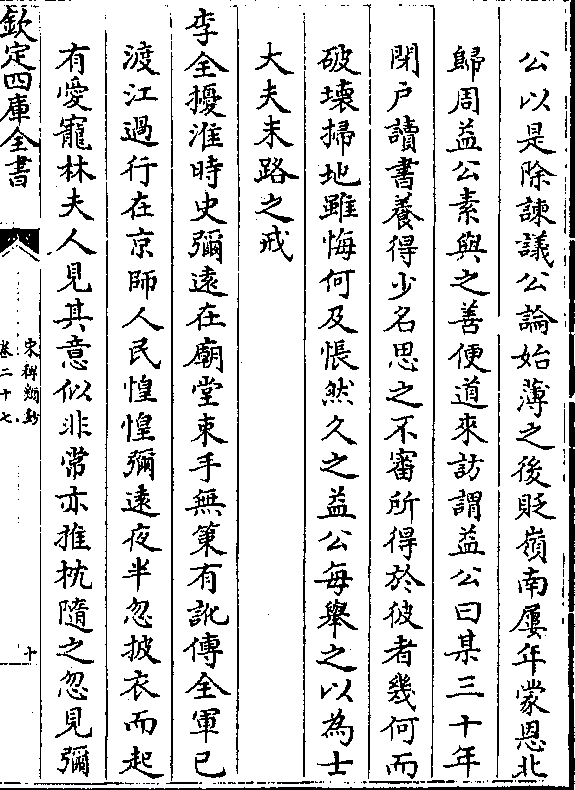 公以是除諫議公論始薄之後貶嶺南屢年蒙恩北
歸周益公素與之善便道來訪謂益公曰某三十年
閉户讀書養得少名思之不審所得於彼者幾何而
破壞掃地雖悔何及悵然久之益公每舉之以為士
大夫末路之戒
李全擾淮時史彌遠在廟堂束手無策有訛傳全軍已
渡江過行在京師人民惶惶彌遠夜半忽披衣而起
有愛寵林夫人見其意似非常亦推枕隨之忽見彌
欽定四庫全書
宋稗類鈔
卷二十七
十